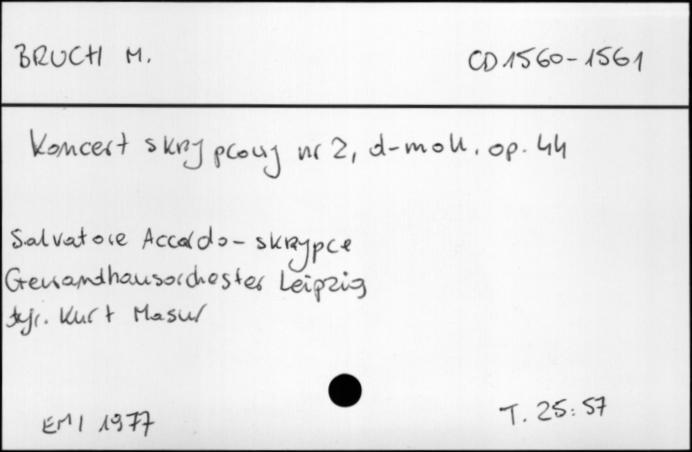 BRUCH M.
CD 1560-1561
Koncert skrzypcowy nr 2, d-moll. op. 44
Salvatore Accardo - skrzypce
Gewandhausorchester Leipzig
dyr. Kurt Masur
EMI 1977
T. 25:57